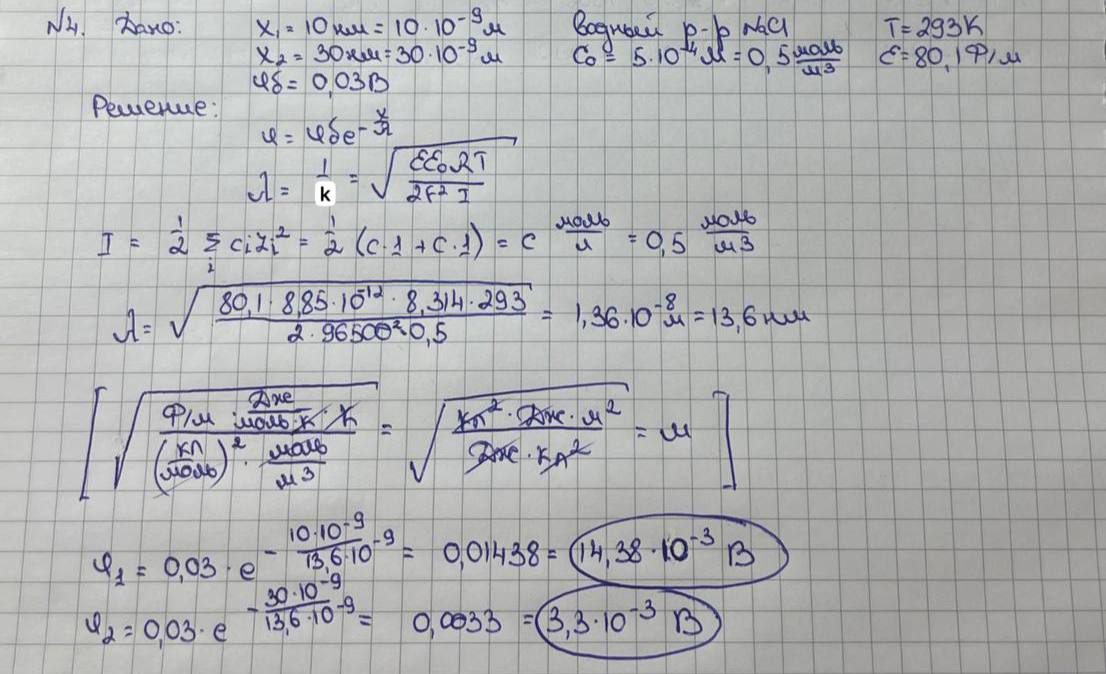 №4. Дано: x₁ = 10 нм = 10·10⁻⁹ м водный р-р NaCl T = 293K
x₂ = 30 нм = 30·10⁻⁹ м C₀ = 5·10⁻⁴ M = 0,5 моль/м3 ε = 80,1 Ф/м
φδ = 0,03В
Решение:
φ = φδe^(-x/λ)
λ = 1/k = √(εε₀RT / 2F² I)
I = 1/2 Σᵢ cᵢzᵢ² = 1/2 (c·1 + c·1) = c моль/л = 0,5 моль/м3
λ = √(80,1·8,85·10⁻¹²·8,314·293 / 2·96500²·0,5) = 1,36·10⁻⁸ м = 13,6 нм
[√(Ф/м · Дж/(моль·К) · К / (Кл/моль)² · моль/м3) = √(Кл²·Дж·м² / Дж·Кл²) = м]
φ₁ = 0,03·e^(-10·10⁻⁹ / 13,6·10⁻⁹) = 0,01438 = 14,38·10⁻³ В
φ₂ = 0,03·e^(-30·10⁻⁹ / 13,6·10⁻⁹) = 0,0033 = 3,3·10⁻³ В